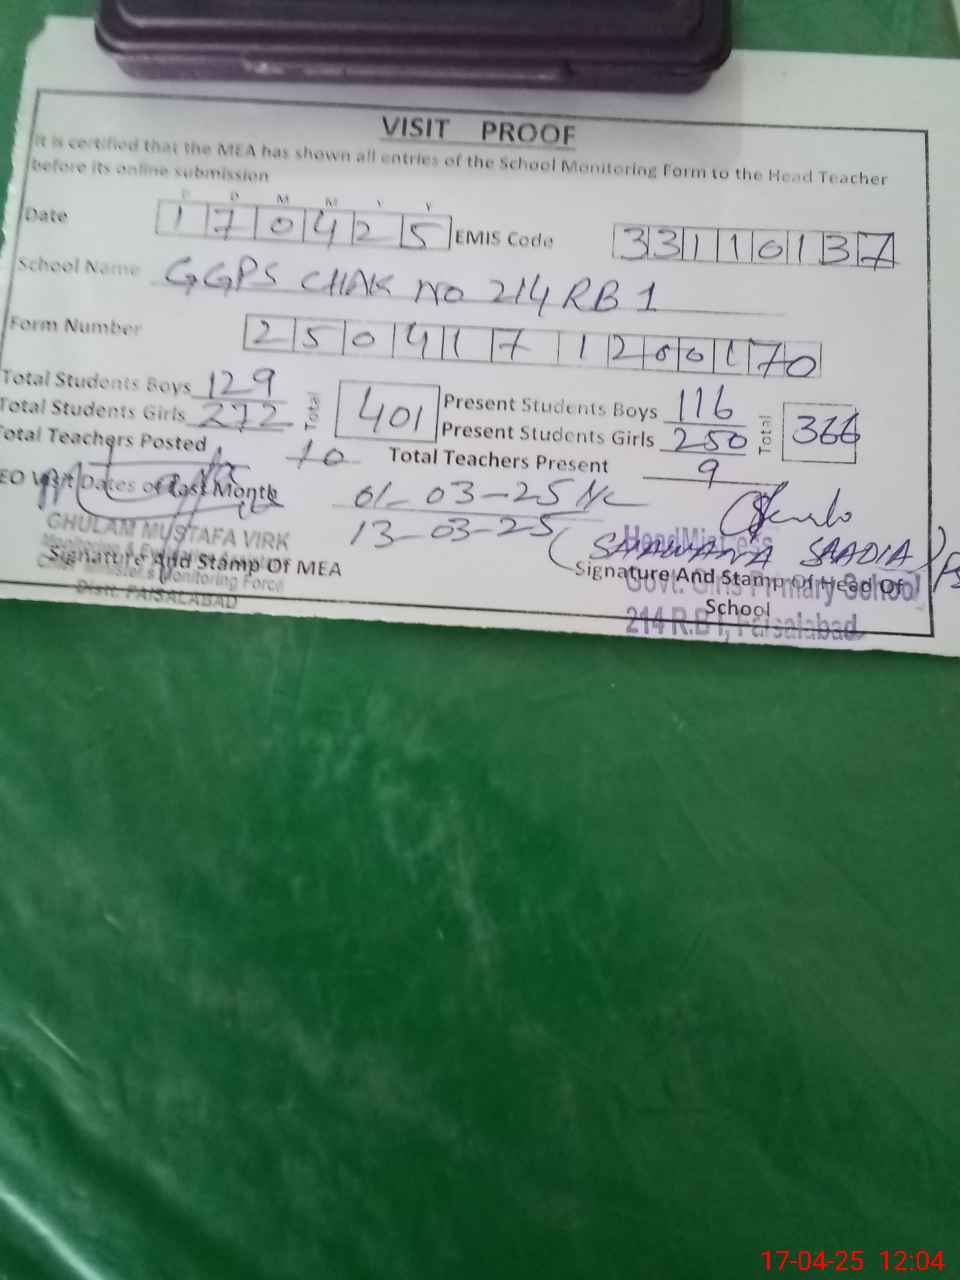 VISIT PROOF
It is certified that the MEA has shown all entries of the School Monitoring Form to the Head Teacher
before its online submission
D D M M Y Y
Date 170425 EMIS Code 33110137
School Name GGPS CHAK NO 214 RB 1
Form Number 2504171200170
Total Students Boys 129 Total 401 Present Students Boys 116 Total 366
Total Students Girls 272 Present Students Girls 250
Total Teachers Posted 10 Total Teachers Present 9
EO Visit Dates of Last Month 01-03-25
13-03-25
GHULAM MUSTAFA VIRK
Monitoring Force
Distt. FAISALABAD
Signature And Stamp Of MEA
SAADIA
HeadMistress
Govt. Girls Primary School
214 R.B I, Faisalabad
Signature And Stamp Of Head Of
School
17-04-25 12:04